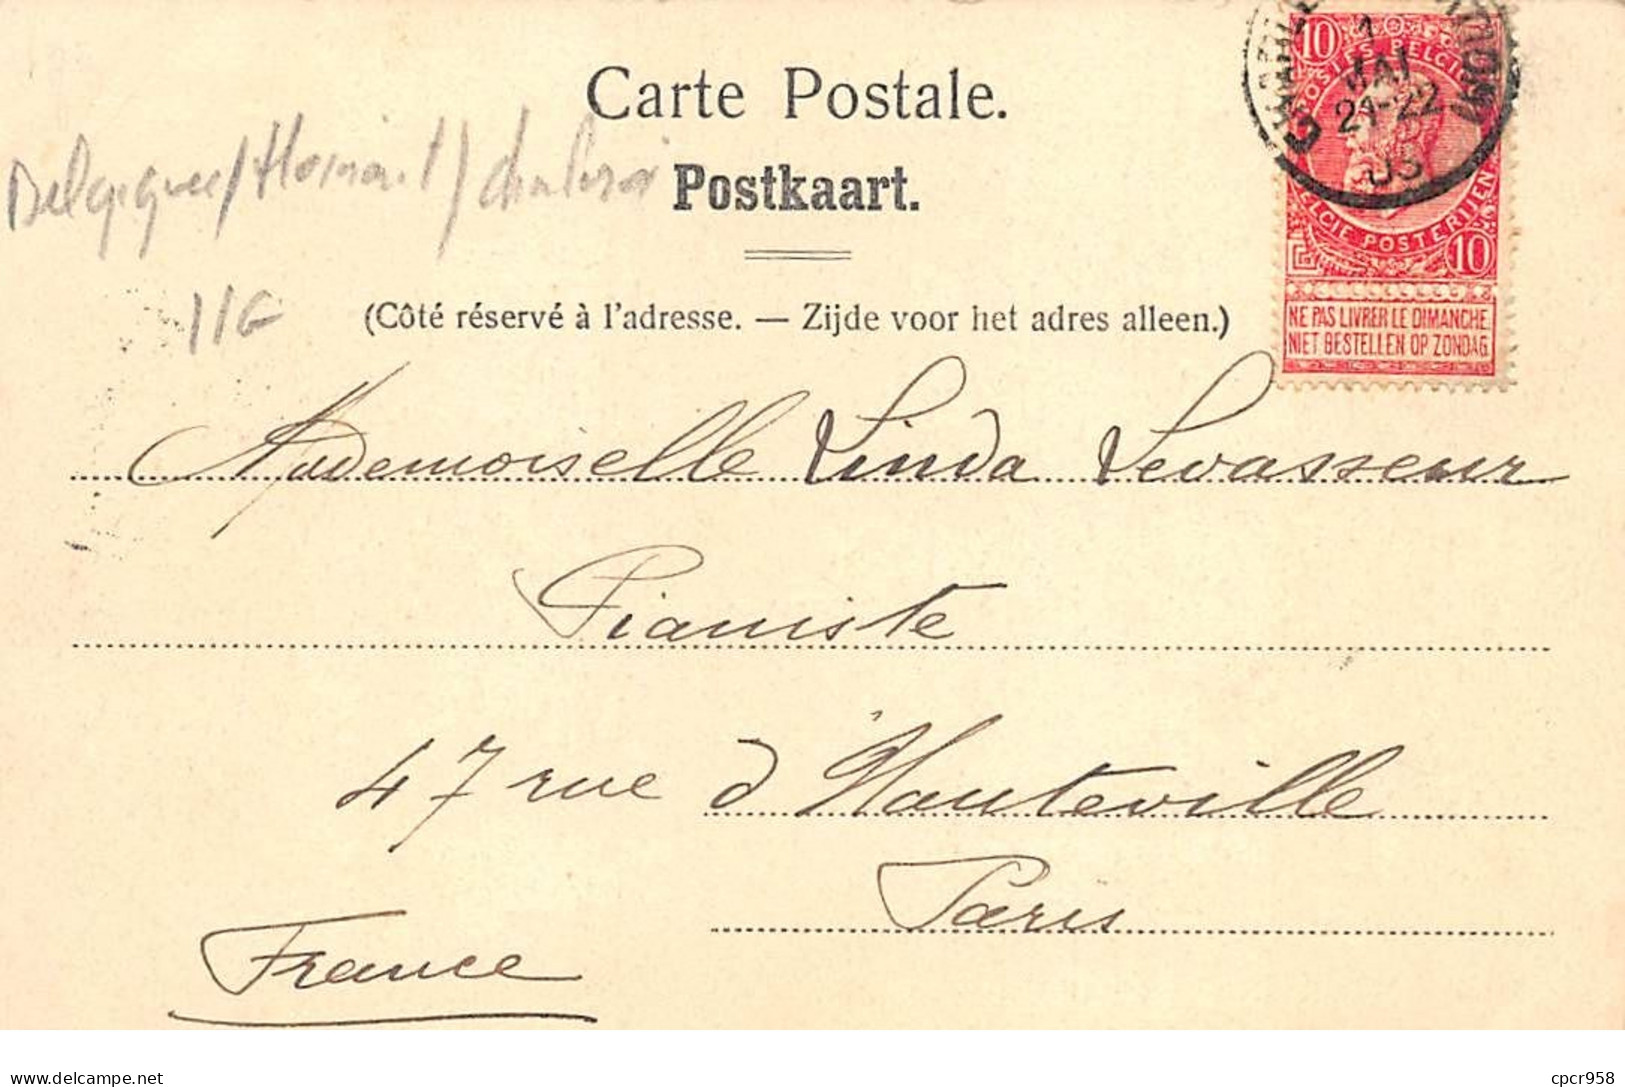 Carte Postale.
Belgique / Hainaut /
Postkaart.
11G
(Côté réservé à l'adresse. — Zijde voor het adres alleen.)
10
POSTES BELGIQUE
1
MAI
21-22
03
BELGIE POSTERIJEN
10
NE PAS LIVRER LE DIMANCHE
NIET BESTELLEN OP ZONDAG
Mademoiselle Linda Levasseur
Pianiste
47 rue d'Hauteville
Paris
France
www.delcampe.net
cpcr958